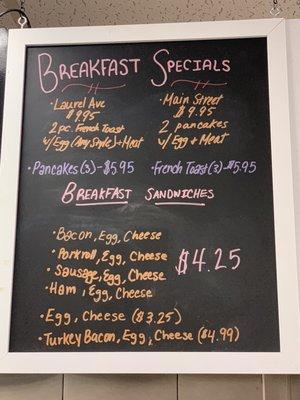 Breakfast Specials
Laurel Ave
$9.95
2 pc. French Toast
w/Egg (Any Style) + Meat
Main Street
$9.95
2 pancakes
w/ Egg + Meat
Pancakes (3) - $5.95
French Toast (3) - $5.95
Breakfast Sandwiches
Bacon, Egg, Cheese
Porkroll, Egg, Cheese
Sausage, Egg, Cheese
Ham, Egg, Cheese
$4.25
Egg, Cheese ($3.25)
Turkey Bacon, Egg, Cheese ($4.99)